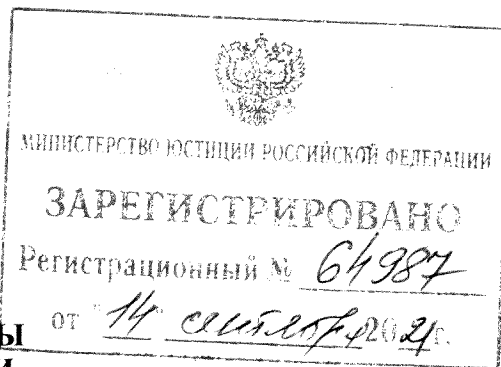 МИНИСТЕРСТВО ЮСТИЦИИ РОССИЙСКОЙ ФЕДЕРАЦИИ
ЗАРЕГИСТРИРОВАНО
Регистрационный № 64987
от "14" сентября 2021г.
Ы